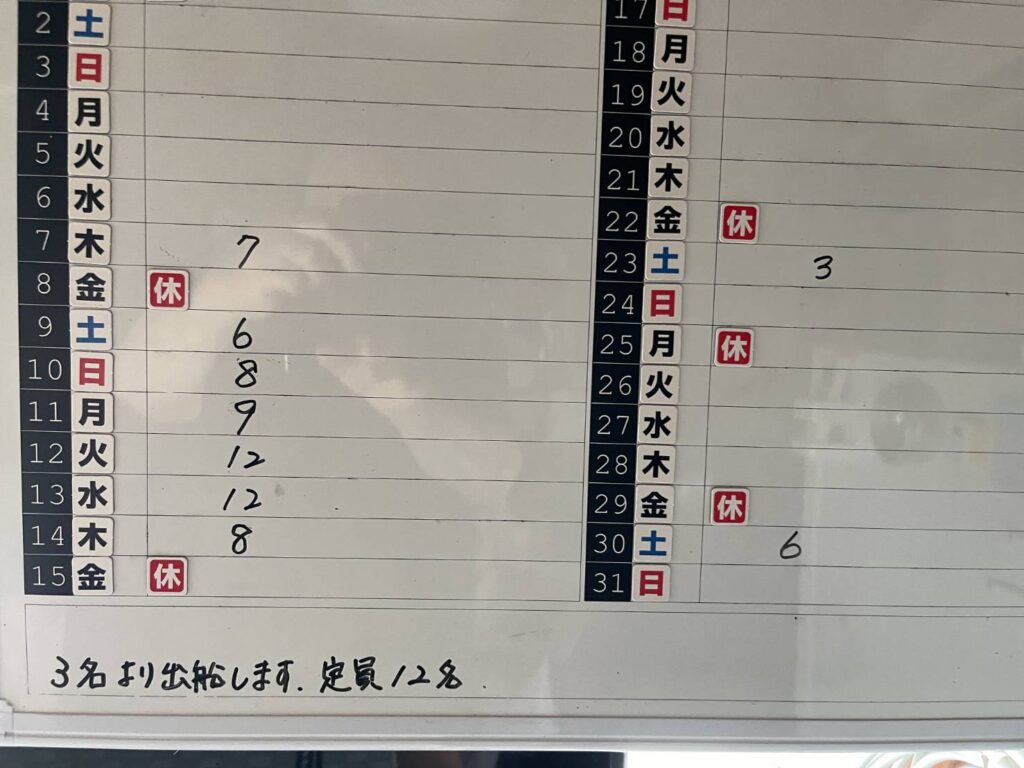 2 土
3 日
4 月
5 火
6 水
7 木 7
8 金 休
9 土 6
10 日 8
11 月 9
12 火 12
13 水 12
14 木 8
15 金 休
17 日
18 月
19 火
20 水
21 木
22 金 休
23 土 3
24 日
25 月 休
26 火
27 水
28 木
29 金 休
30 土 6
31 日
3名より出船します. 定員12名.